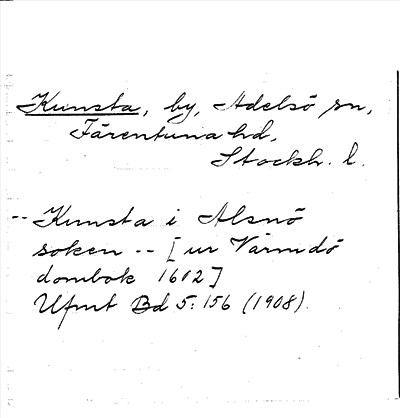 Kunsta, by, Adelsö sn,
Färentuna hd,
Stockh. l.
-- Kunsta i Alsnö
soken -- [ur Värmdö
dombok 1612]
Ufmt Bd 5: 156 (1908).